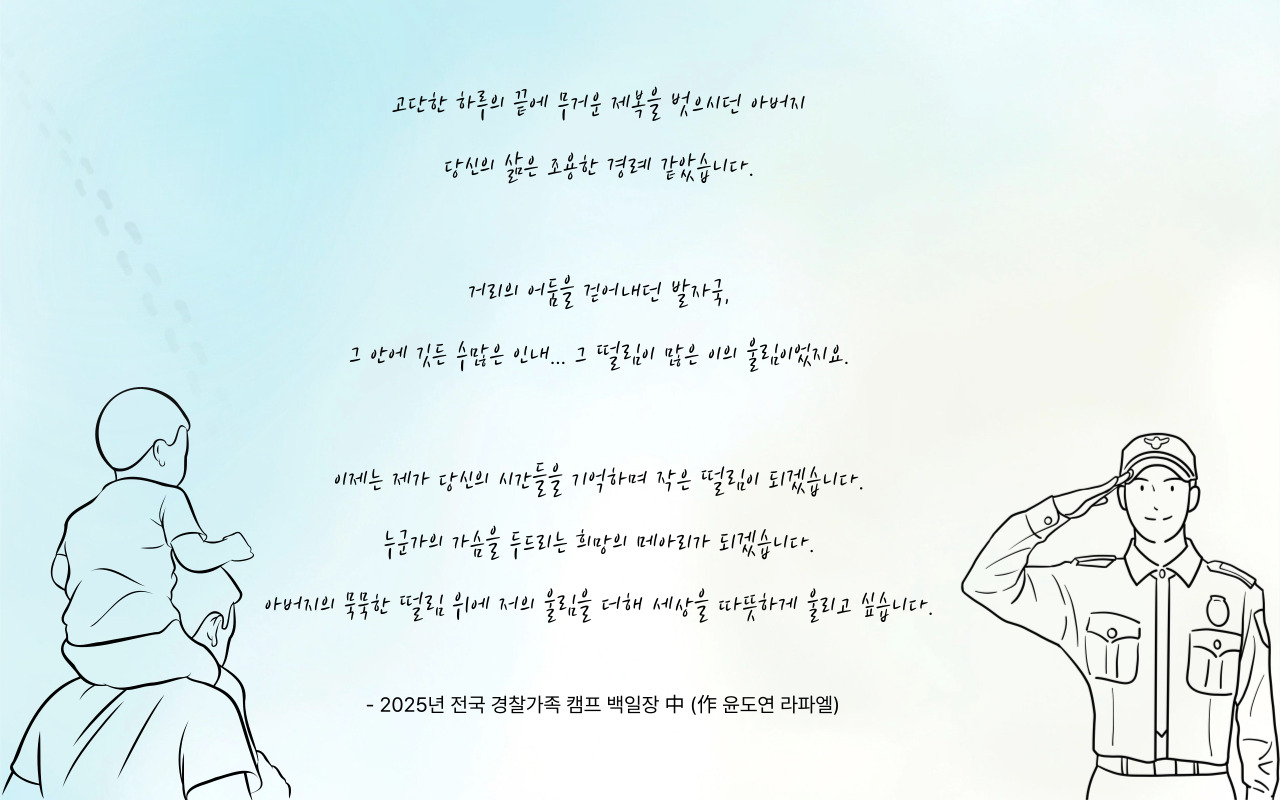 고단한 하루의 끝에 무거운 제복을 벗으시던 아버지
당신의 삶은 조용한 경례 같았습니다.
거리의 어둠을 걷어내던 발자국,
그 안에 깃든 수많은 인내... 그 떨림이 많은 이의 울림이었지요.
이제는 제가 당신의 시간들을 기억하며 작은 떨림이 되겠습니다.
누군가의 가슴을 두드리는 희망의 메아리가 되겠습니다.
아버지의 묵묵한 떨림 위에 저의 울림을 더해 세상을 따뜻하게 울리고 싶습니다.
- 2025년 전국 경찰가족 캠프 백일장 中 (作 윤도연 라파엘)